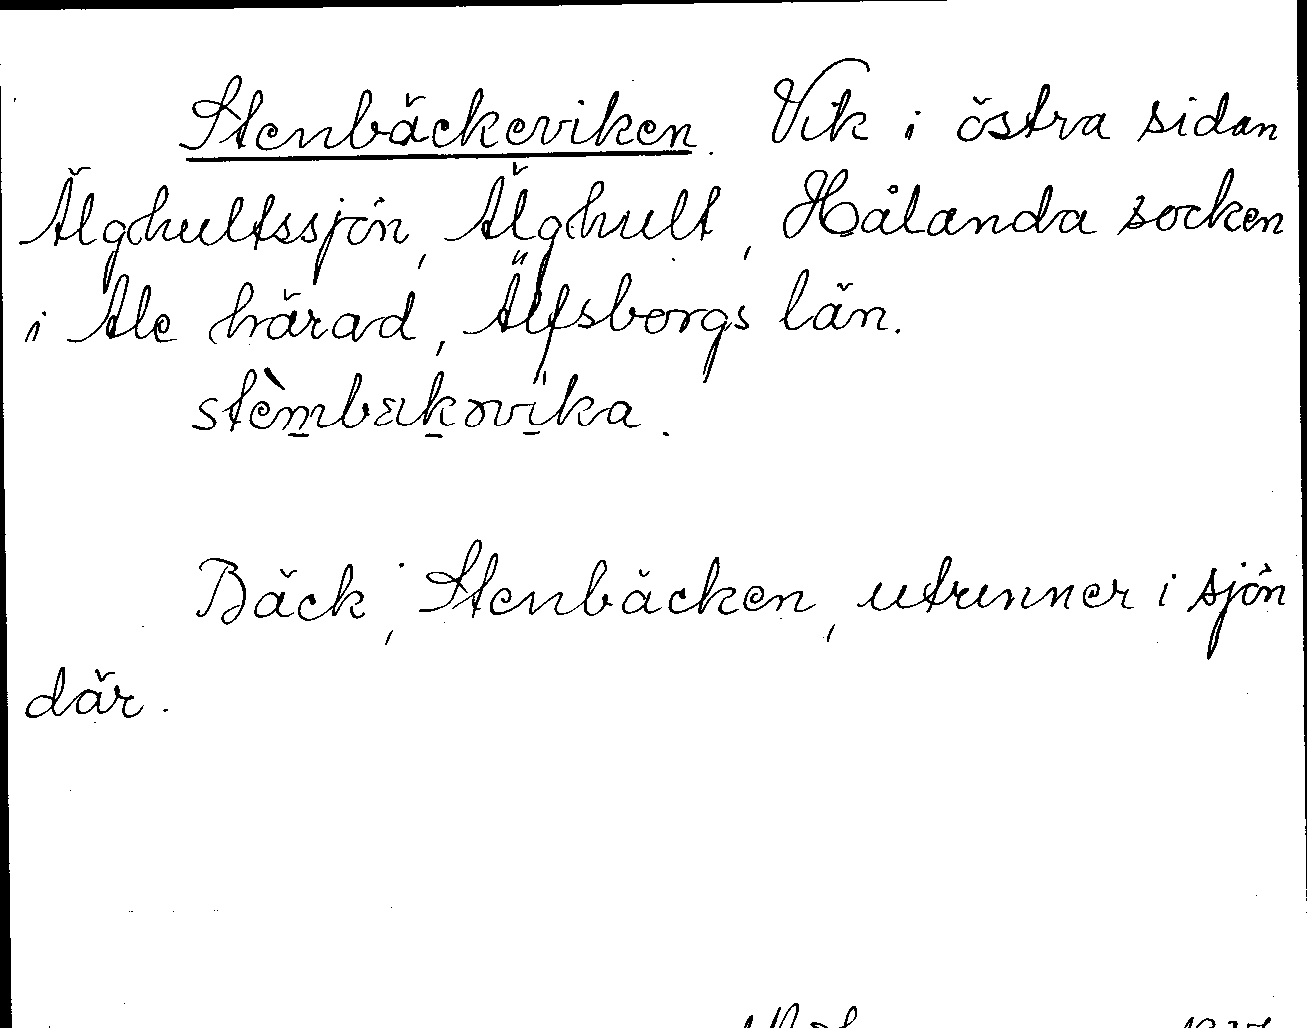 Stenbäckeviken. Vik i östra sidan
Älghultssjön, Älghult, Hålanda socken
i Ale härad, Älfsborgs län.
stèmbækəvika.
Bäck, Stenbäcken, utrunner i sjön
där.